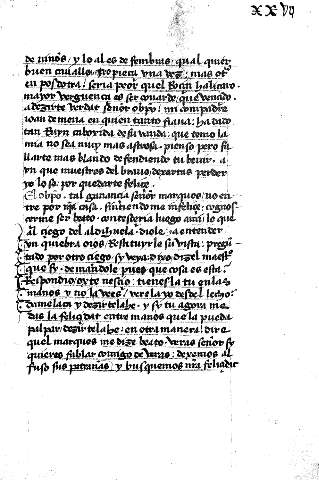 xx vij
de menos. y lo al es de fembras. qual quier
buen cauallo. tropieça vna vez. mas el
en pos otra. seria peor quel
mayor verguença es ser couardo. que vençido.
a dezirte verdat señor obpo. mi conpadre
ioan de mena en quien tanto fiaua. ha dado
tan ruyn de su vanda. que como la
mia no sea muy mas astrosa. pienso pero fa
llarte mas blando defendiendo tu beuir. a
vn que muestres del brauo. departas perder
yo lo se. por quedarte feliçe.
El obpo. tal ganançia señor marques. no en
tre por mi casa. fiuziendo me infeliçe. conos
cerme ser beato. contesçeria luego a mi lo que
al çiego del aldehuela. diole. a entender
vn quiebra oios. restituyr le su vista. pregun
tado por otro çiego. sy veya. dixo dize el maestro
que sy. demandole pues que cosa es esta.
Respondio. oyte nesçio. tienes la tu en las
manos y no la vees. verela yo desdel leho.
damela ca y dezir te la he. y sy tu agora me
das la feliçidat entre manos que la pueda
palpar. dezir te la he. en otra manera. dire
quel marques me dize beato. veras señor sy
quieres fablar comigo de veras. dexemos al
fuso sus patrañas. y busquemos mi feliçidat